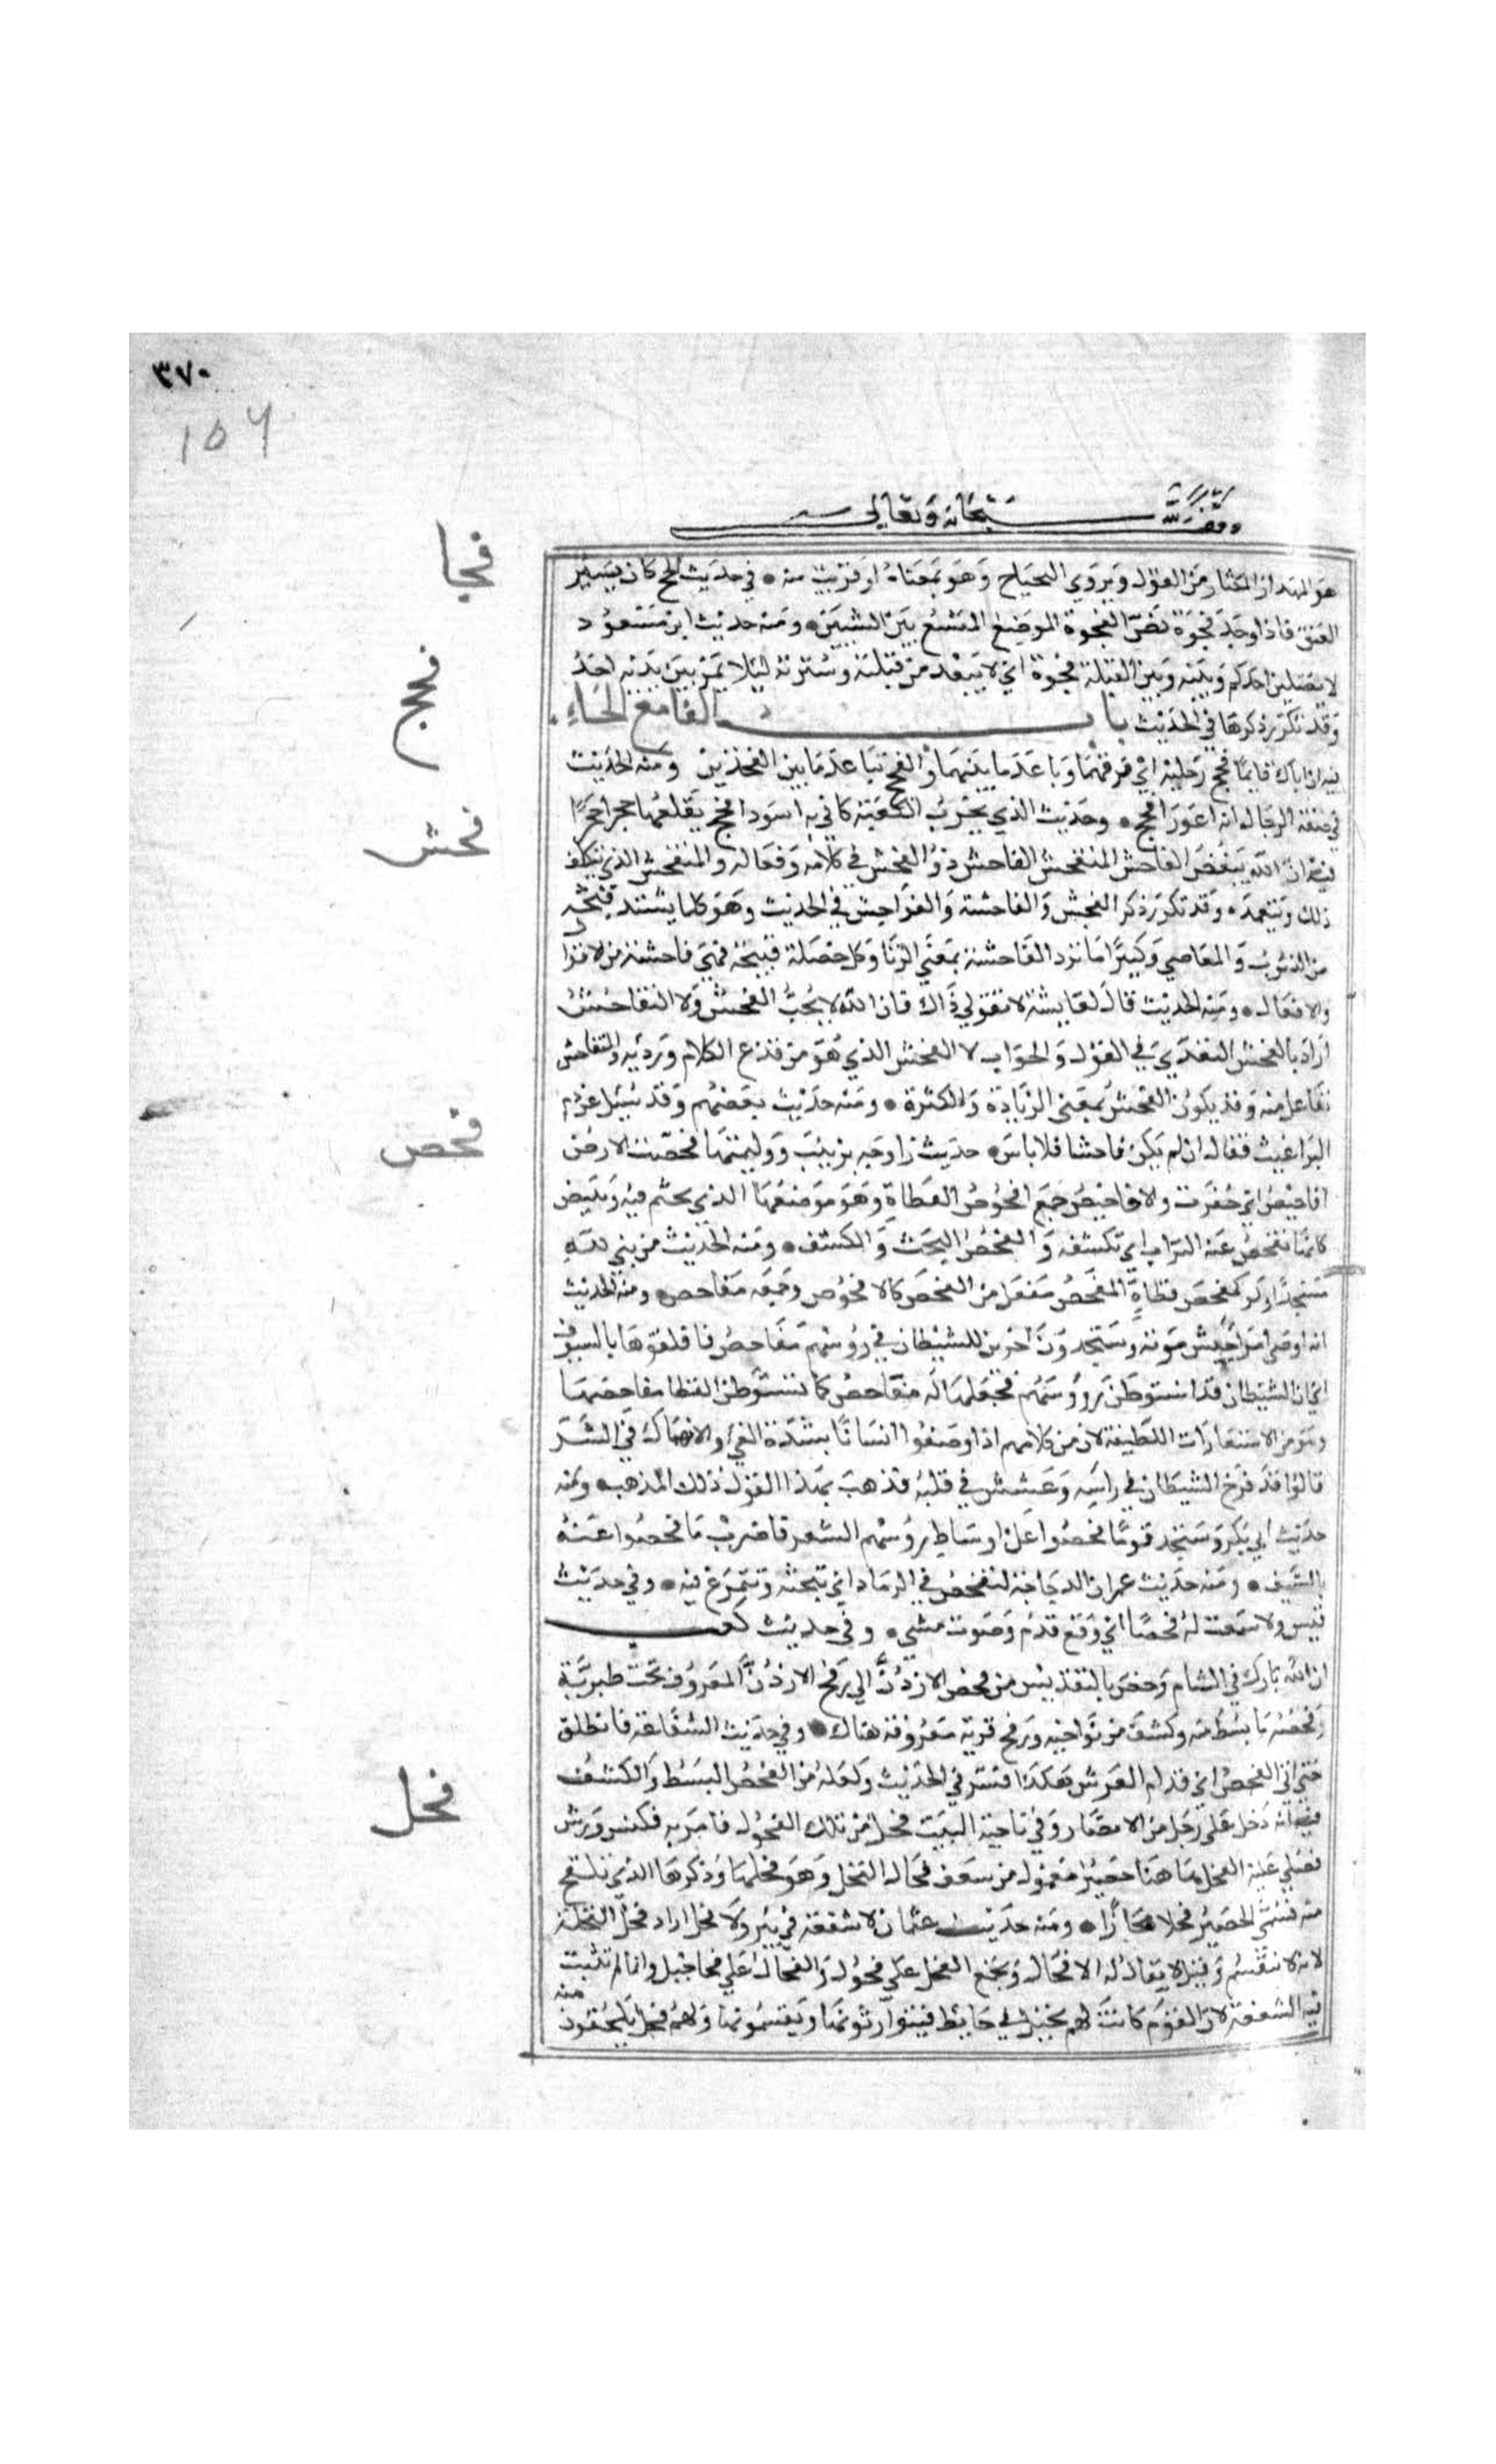 ٣٧٠
156
وقف لله سبحانه وتعالى
فجا
هو المهذار المكثار من القول ويروي البجباج وهو بمعناه او قريب منه في حديث الحج كان يسير
العنق فاذا وجد فجوة نص الفجوة الموضع المتسع بين الشيين ومنه حديث ابن مسعود
لا يصلين احدكم وبينه وبين القبلة فجوة اي لا يبعد من قبلته وسترته ليلا يمر بين يديه احد
وقد تكرر ذكرها في الحديث باب الفا مع الحاء
فحج
فيه انه بال قايما ففحج رجليه اي فرقهما وباعد ما بينهما والفحج تباعد ما بين الفخذين ومنه الحديث
في صفة الدجال انه اعور افحج وحديث الذي يخرب الكعبة كاني به اسود افحج يقلعها حجرا حجرا
فحش
فيه ان الله يبغض الفاحش المتفحش الفاحش ذو الفحش في كلامه وفعاله والمتفحش الذي يتكلف
ذلك ويتعمده وقد تكرر ذكر الفحش والفاحشة والفواحش في الحديث وهو كلما يشتد قبحه
من الذنوب والمعاصي وكثيرا ما ترد الفاحشة بمعني الزنا وكل خصلة قبيحة فهي فاحشة من الاقوا
والافعال ومنه الحديث قال لعايشة لا تقولي ذاك فان الله لا يحب الفحش ولا التفاحش
اراد بالفحش التعدي في القول والجواب لا الفحش الذي هو من قذع الكلام ورديه والتفاحش
تفاعل منه وقد يكون الفحش بمعني الزيادة والكثرة ومنه حديث بعضهم وقد سيل عن دم
البراغيث فقال ان لم يكن فاحشا فلا باس
فحص
حديث زواجه بزينب ووليمتها فحصت الارض
افاحيص اي حفرت والافاحيص جمع افحوص القطاة وهو موضعها الذي تجثم فيه وتبيض
كانها تفحص عنه التراب اي تكشفه والفحص البحث والكشف ومنه الحديث من بني لله
مسجدا ولو كمفحص قطاة المفحص مفعل من الفحص كالافحوص وجمعه مفاحص ومنه الحديث
انه اوصى امرا جيش موتة وستجدون آخرين للشيطان في رؤسهم مفاحص فافلقوها بالسيوف
اي ان الشيطان قد استوطن رؤسهم فجعلها له مفاحص كما تستوطن القطا مفاحصها
وهو من الاستعارات اللطيفة لان من كلامهم اذا وصفوا انسانا بشدة الغي والانهماك في الشر
قالوا قد فرخ الشيطان في راسه وعشش في قلبه فذهب بهذا القول ذلك المذهب ومنه
حديث ابي بكر وستجد قوما فحصوا عن اوساط رؤسهم الشعر فاضرب ما فحصوا عنه
بالسيف ومنه حديث عمر ان الدجاجة لتفحص في الرماد اي تبحثه وتتمرغ فيه وفي حديث
قيس ولا سمعت له فحصا اي وقع قدم وصوت مشي وفي حديث كعب
ان الله بارك في الشام وخص بالتقديس من فحص الاردن الي رفح الاردن المعروف تحت طبرية
وفحصه ما بسط منه وكشف من نواحيه ورفح قرية معروفة هناك وفي حديث الشفاعة فانطلق
حتي اتي الفحص اي قدام العرش هكذا فسر في الحديث ولعله من الفحص البسط والكشف
فحل
فيه انه دخل علي رجل من الانصار وفي ناحية البيت فحل من تلك الفحول فامر به فكنس ورش
فصلي عليه الفحل هاهنا حصير معمول من سعف فحال النخل وهو فحلها وذكرها الذي تلقح
منه فسمي الحصير فحلا مجازا ومنه حديث عثمان لا شفعة في بير ولا فحل اراد فحل النخلة
لانه لا ينقسم وقيل لا يقال له الا فحال ويجمع الفحل علي فحول والفحال علي فحاحيل وانما لم تثبت
فيه الشفعة لان القوم كانت لهم نخيل في حايط فيتوارثونها ويقتسمونها ولهم فحل يلحقون
منه